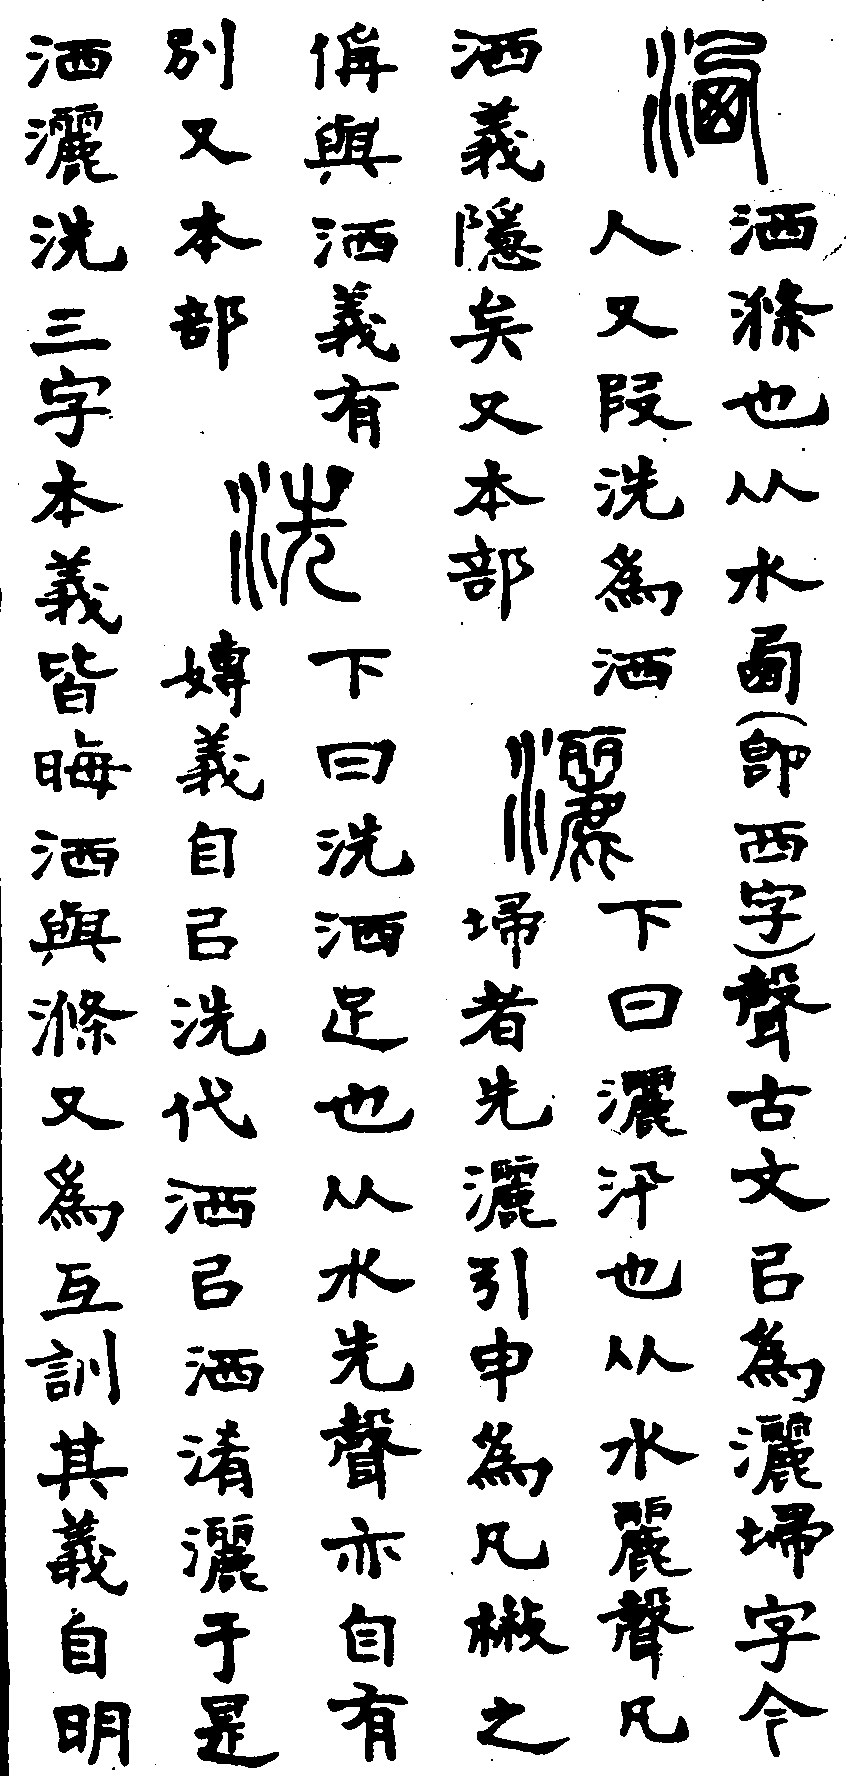 洒
洒滌也从水𠧪(卽西字)聲古文㠯為灑埽字今
人又叚洗為洒
洒義隱矣又本部
灑
下曰灑汛也从水麗聲凡
埽者先灑引申為凡㪚之
偁與洒義有
別又本部
洗
下曰洗洒足也从水先聲亦自有
嫥義自㠯洗代洒㠯洒淆灑于是
洒灑洗三字本義皆晦洒與滌又為互訓其義自明